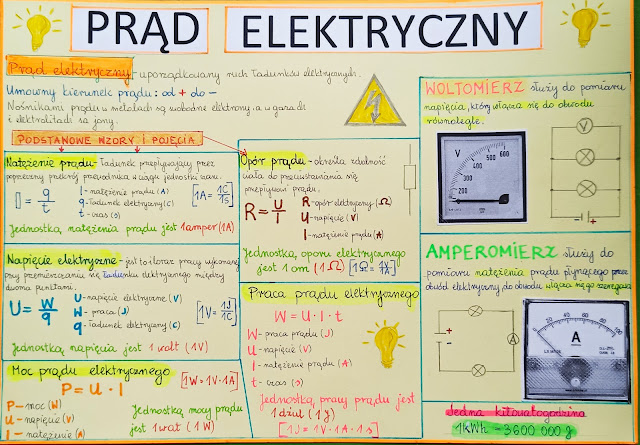 PRĄD ELEKTRYCZNY
Prąd elektryczny - uporządkowany ruch ładunków elektrycznych.
Umowny kierunek prądu: od + do -
Nośnikami prądu w metalach są swobodne elektrony, a w gazach
i elektrolitach są jony.
PODSTAWOWE WZORY I POJĘCIA
Natężenie prądu - ładunek przepływający przez
poprzeczny przekrój przewodnika w ciągu jednostki czasu.
I = q/t
I - natężenie prądu (A)
q - ładunek elektryczny (C)
t - czas (s)
[1A = 1C/1s]
Jednostką natężenia prądu jest 1 amper (1A)
Napięcie elektryczne - jest to iloraz pracy wykonanej
przy przemieszczaniu się ładunku elektrycznego między
dwoma punktami.
U = W/q
U - napięcie elektryczne (V)
W - praca (J)
q - ładunek elektryczny (C)
[1V = 1J/1C]
Jednostką napięcia jest 1 wolt (1V)
Moc prądu elektrycznego
P = U · I
[1W = 1V · 1A]
P - moc (W)
U - napięcie (V)
I - natężenie (A)
Jednostką mocy prądu
jest 1 wat (1 W)
Opór prądu - określa zdolność
ciała do przeciwstawiania się
przepływowi prądu.
R = U/I
R - opór elektryczny (Ω)
U - napięcie (V)
I - natężenie prądu (A)
Jednostką oporu elektrycznego
jest 1 om (1 Ω) [1Ω = 1V/1A]
Praca prądu elektrycznego
W = U · I · t
W - praca prądu (J)
U - napięcie (V)
I - natężenie prądu (A)
t - czas (s)
Jednostką pracy prądu jest
1 dżul (1 J)
[1J = 1V · 1A · 1s]
WOLTOMIERZ służy do pomiaru
napięcia, który włącza się do obwodu
równolegle.
V
200 300 400 500 600
V
+
AMPEROMIERZ służy do
pomiaru natężenia prądu płynącego przez
obwód elektryczny do obwodu włącza się go szeregowo
A
+
-
A
0 20 40 60 80 100
A
Jedna kilowatogodzina
1kWh = 3600 000 J